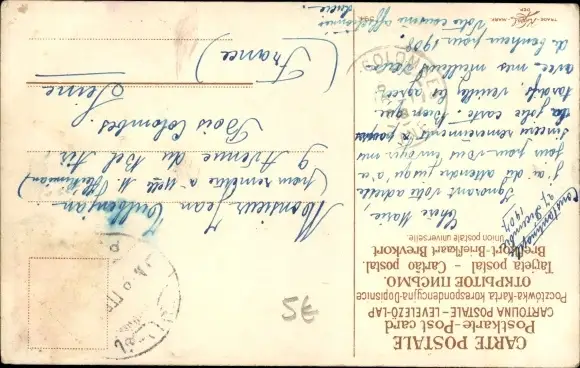 CARTE POSTALE
Postkarte-Post card
CARTOLINA POSTALE – LEVELEZÖ-LAP
Pocztówka-Karta korespondencyjna-Dopisnice
ОТКРЫТОЕ ПИСЬМО.
Tarjeta postal – Cartao postal
Brevkort-Briefkaart Brevkort
Union postale universelle.
Constantinople
27 Décembre
1907
Chère Marie
Ignorant votre adresse
j'ai dû attendre jusqu'à ce
jour pour vous envoyer mes
sincères remerciements pour
la jolie carte. Bien que
tardifs, veuillez les agréer
avec mes meilleurs vœux
de bonheur pour 1908
Votre cousine affectionnée
Monsieur Jean
(pour remettre à Mlle M.
9 Avenue du Bel Air
Bois Colombes.
Seine
(France)
COLOMBES
5€
TRADE MARK